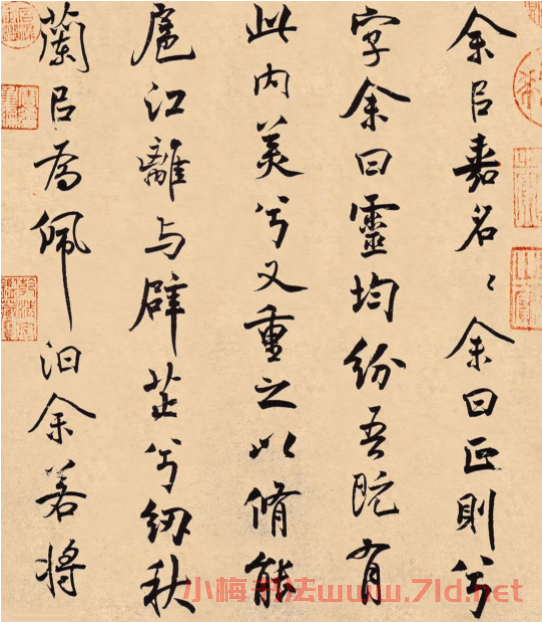 余㠯嘉名〻余曰正則兮
字余曰靈均紛吾既有
此内美兮又重之以脩能
扈江離与辟芷兮紉秋
蘭㠯為佩汩余若将
小梅书法www.7ld.net